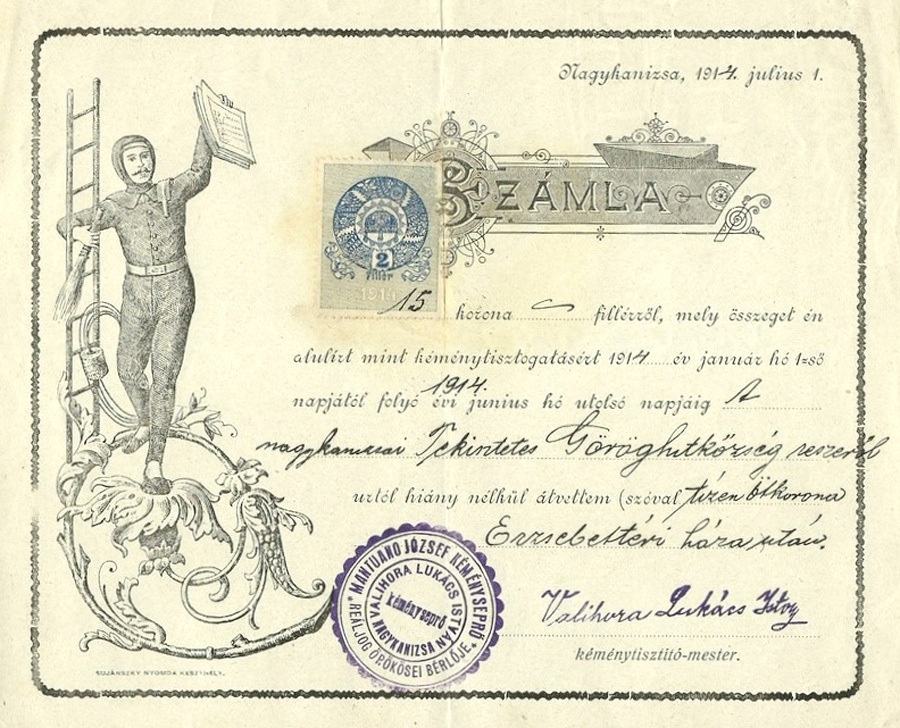 Nagykanizsa, 1914. julius 1.
SZÁMLA
2
fillér
1914
15 korona fillérről, mely összeget én
alulírt mint kéménytisztogatásért 1914 év január hó 1-ső
napjától folyó 1914. évi junius hó utolsó napjáig A
nagykanizsai Tekintetes Göröghitközség részéről
urtól hiány nélkül átvettem (szóval tizenötkorona
Erzsébettéri háza után.
MANTUANO JÓZSEF KÉMÉNYSEPRŐ
REÁLJOG ÖRÖKÖSEI BÉRLŐJE
VALIHORA LUKÁCS ISTVÁN
kéményseprő
NAGYKANIZSA
Valihora Lukács
kéménytisztító-mester.
SUJÁNSZKY NYOMDA KESZTHELY.